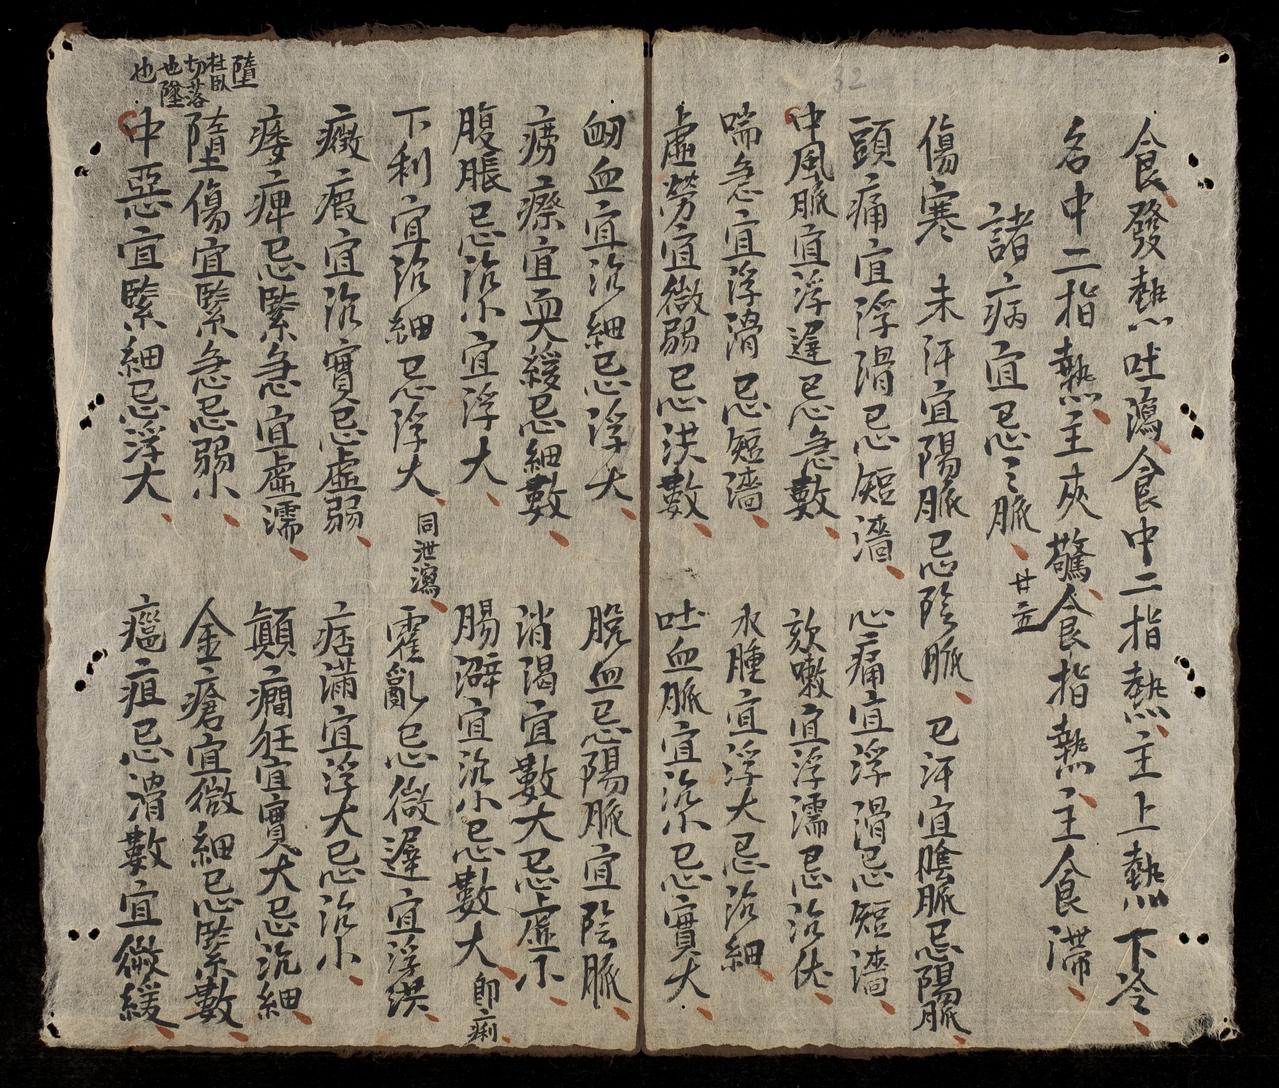 食發熱吐瀉食中二指熱主上熱下冷
名中二指熱主夾驚食指熱主食滯
諸病宜忌之脈 廿五
傷寒 未汗宜陽脈忌陰脈 已汗宜陰脈忌陽脈
頭痛宜浮滑忌短濇 心痛宜浮滑忌短濇
中風脈宜浮遲忌急數 欬嗽宜浮濡忌沉伏
喘急宜浮滑忌短濇 水腫宜浮大忌沉細
虛勞宜微弱忌洪數 吐血脈宜沉小忌實大
衄血宜沉細忌浮大 脫血忌陽脈宜陰脈
癆瘵宜緩忌細數 消渴宜數大忌虛小
腹脹忌沉小宜浮大 腸澼宜沉小忌數大 即痢
下利宜沉細忌浮大 同泄瀉 霍亂忌微遲宜浮洪
癥瘕宜沉實忌虛弱 痞滿宜浮大忌沉小
痿痺忌緊急宜虛濡 顛癇狂宜實大忌沉細
墮傷宜緊急忌弱小 金瘡宜微細忌緊數
中惡宜緊細忌浮大 瘟疽忌滑數宜微緩
墮
杜臥
切落
也墜
也
32